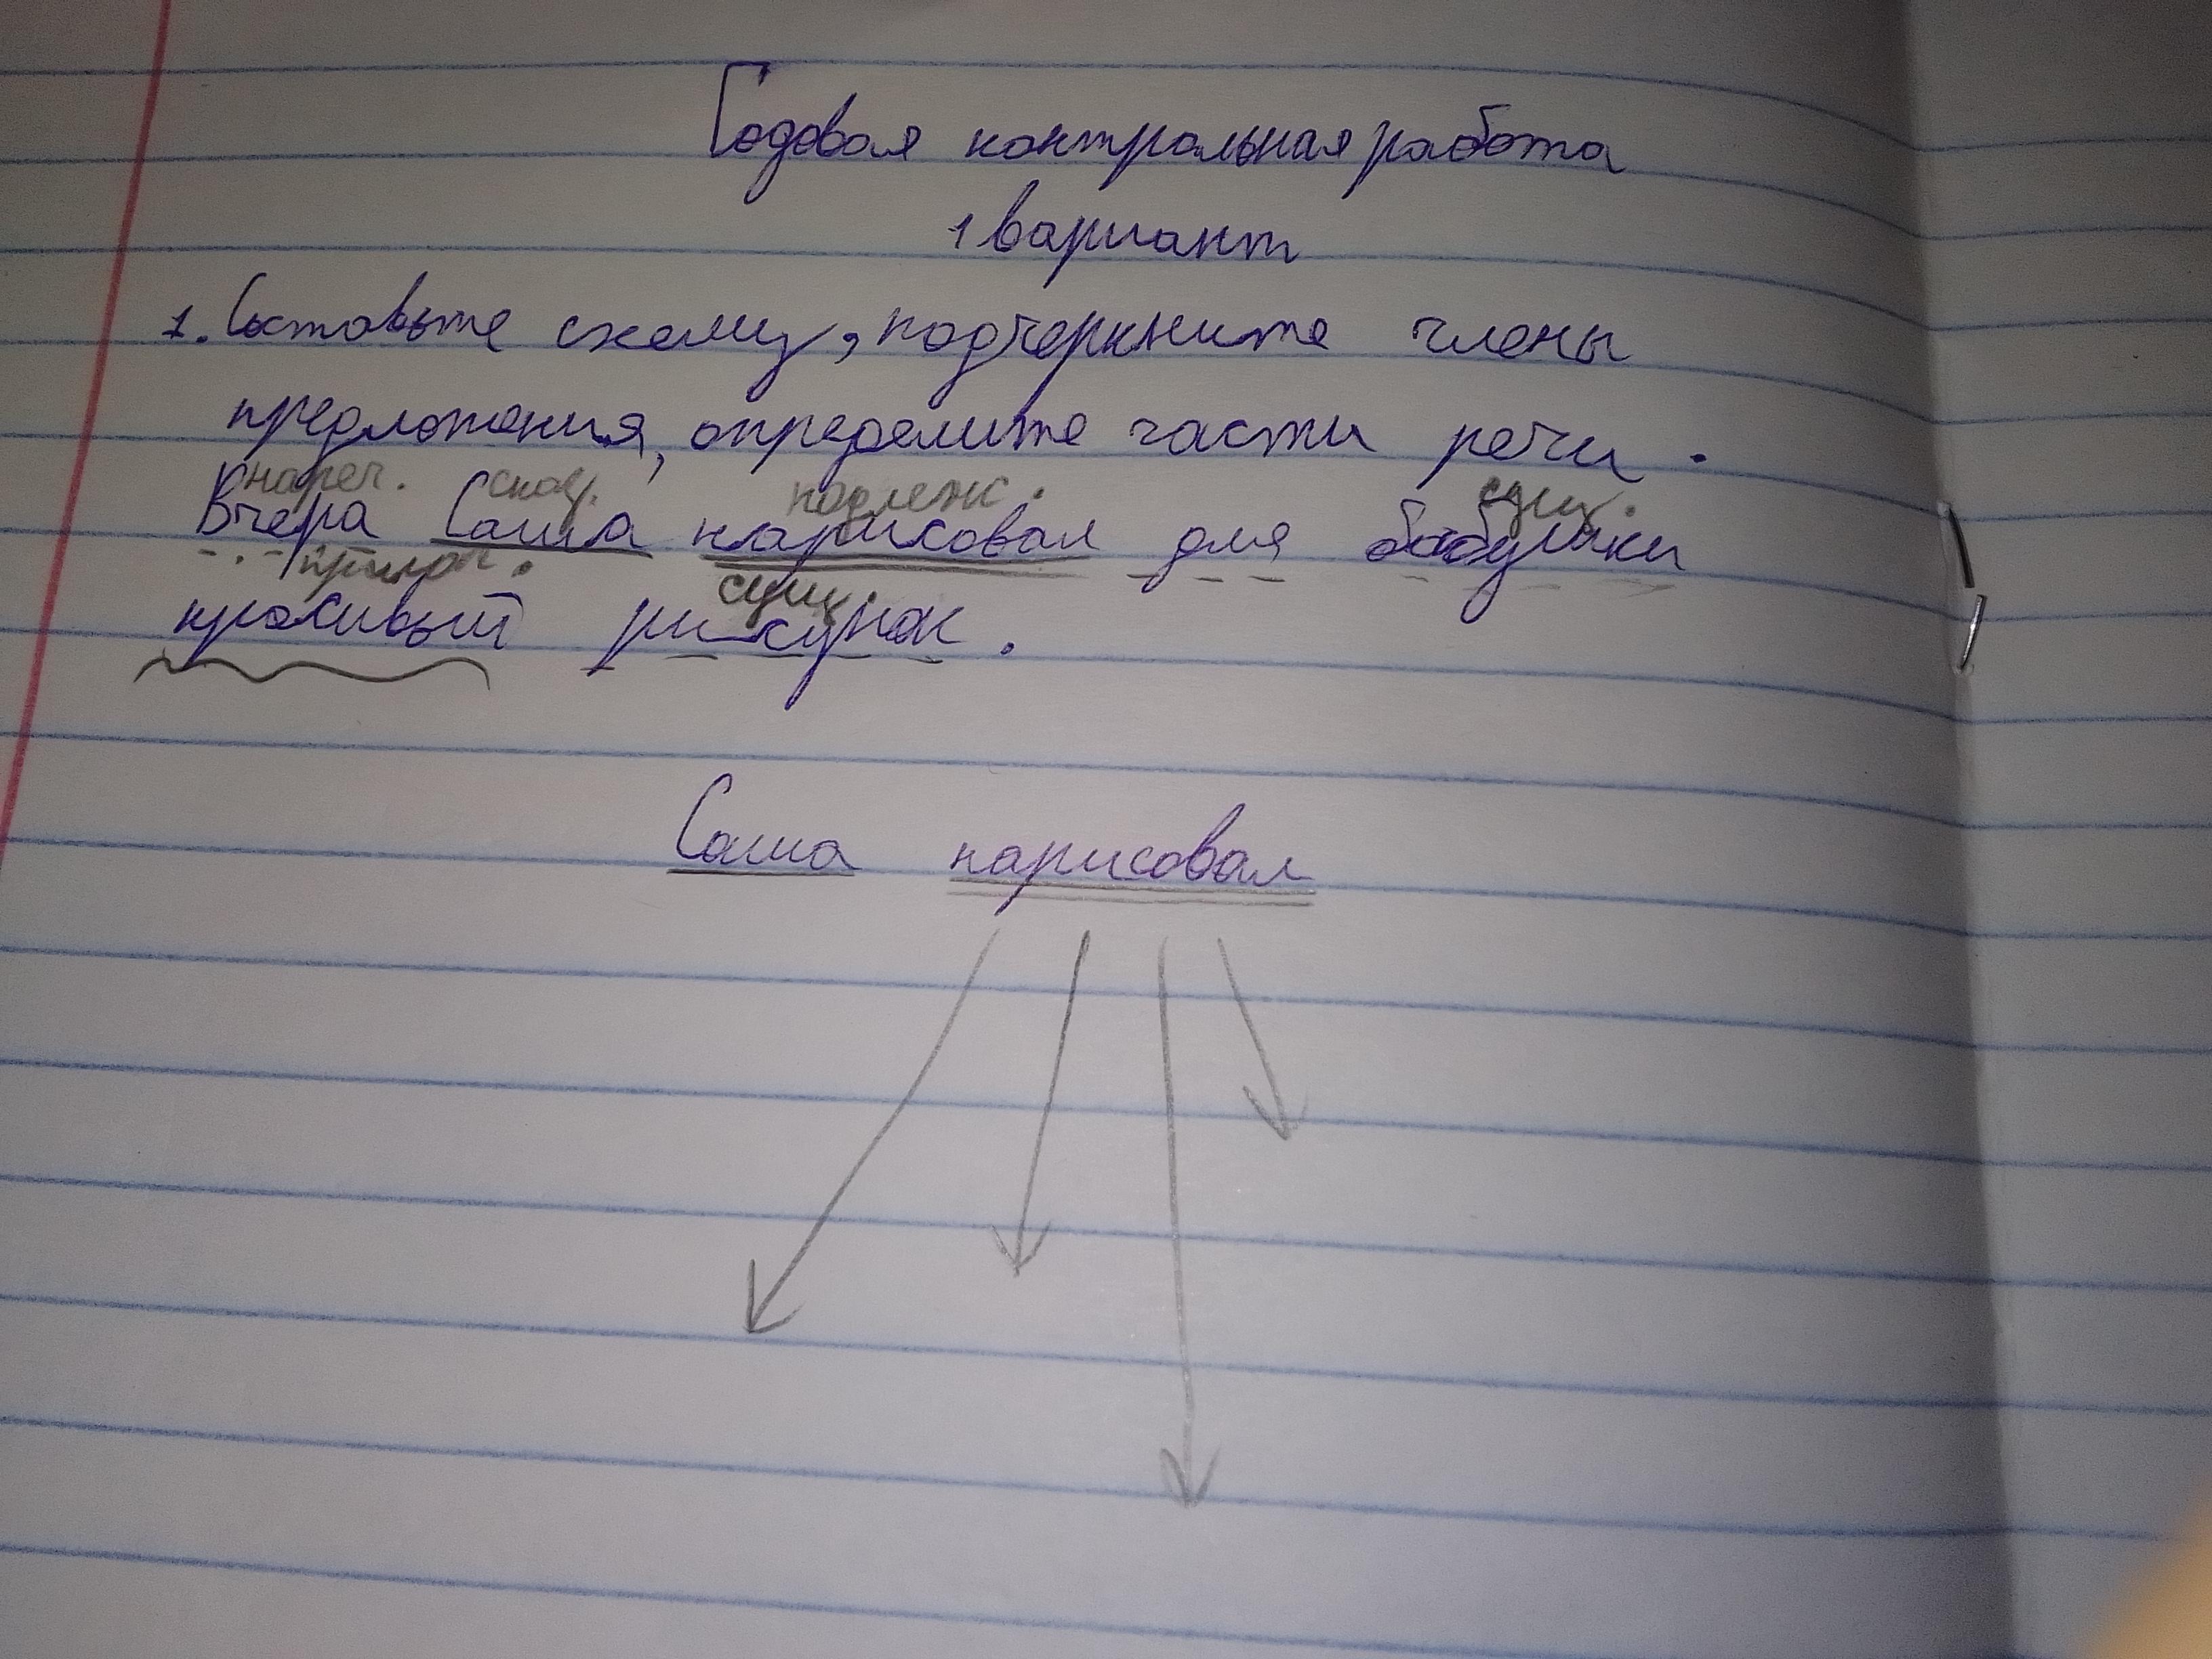 Годовая контрольная работа
1 вариант
1. Составьте схему, подчеркните члены
предложения, определите части речи.
нареч. сказ. подлеж. сущ.
Вчера Саша нарисовал для бабушки
прилаг. сущ.
красивый рисунок.
Саша нарисовал